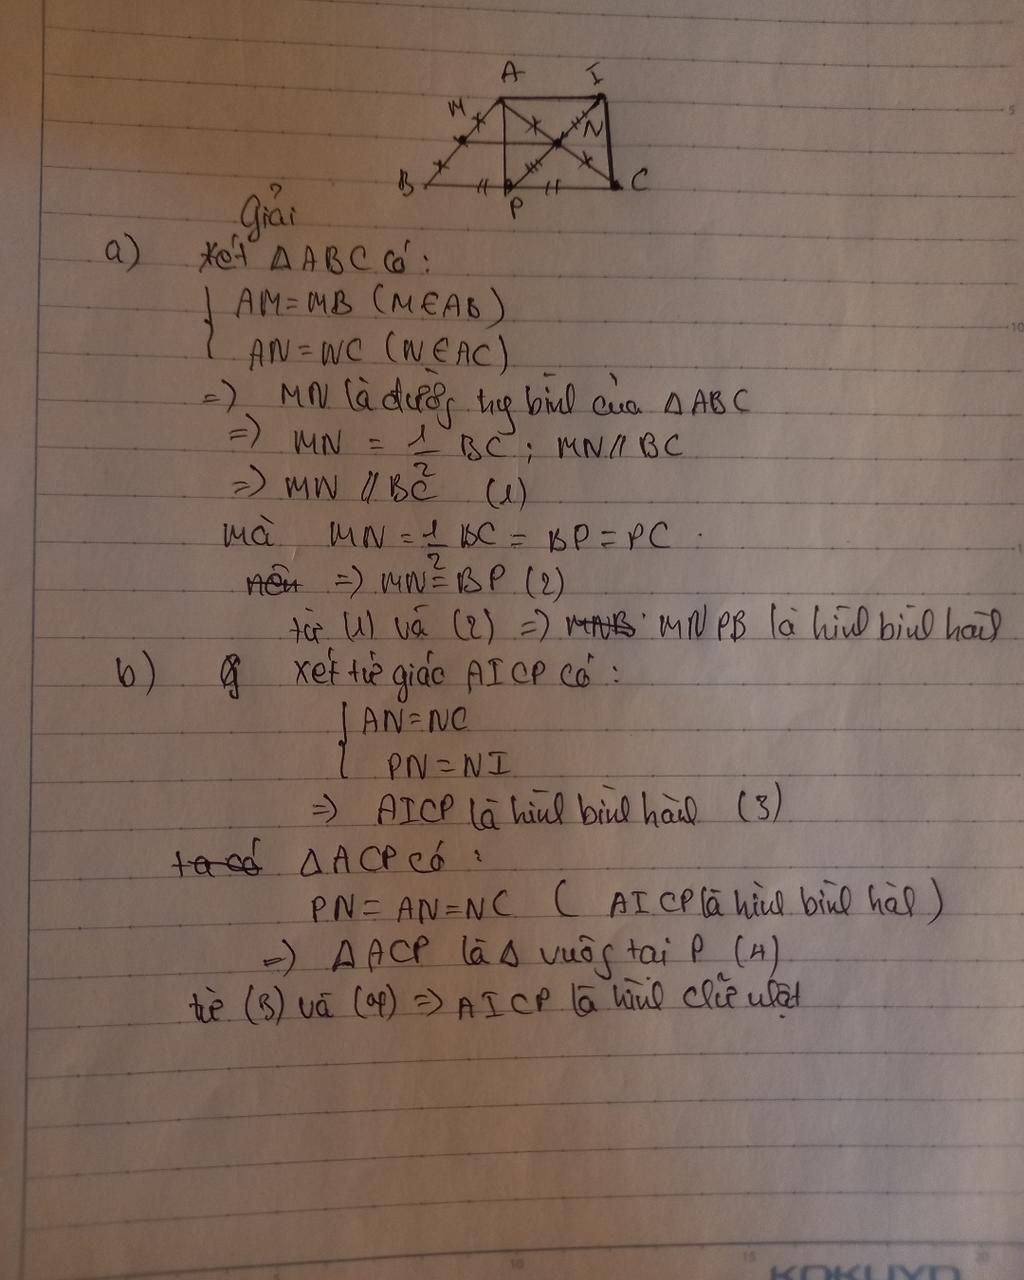 A I
M N
B P C
Giải
a) Xét Δ ABC có:
AM = MB (M ∈ AB)
AN = NC (N ∈ AC)
=) MN là đường trg bình của Δ ABC
=) MN = 1/2 BC ; MN // BC
=) MN // BC (1)
mà MN = 1/2 BC = BP = PC .
nên =) MN = BP (2)
từ (1) và (2) =) MNB MNPB là hình bình hành
b) xét tứ giác AICP có :
AN = NC
PN = NI
=) AICP là hình bình hành (3)
ta có Δ ACP có :
PN = AN = NC ( AICP là hình bình hành )
=) Δ ACP là Δ vuông tại P (4)
từ (3) và (4) =) AICP là hình chữ nhật
5
10
10
15
20
KOKUYO